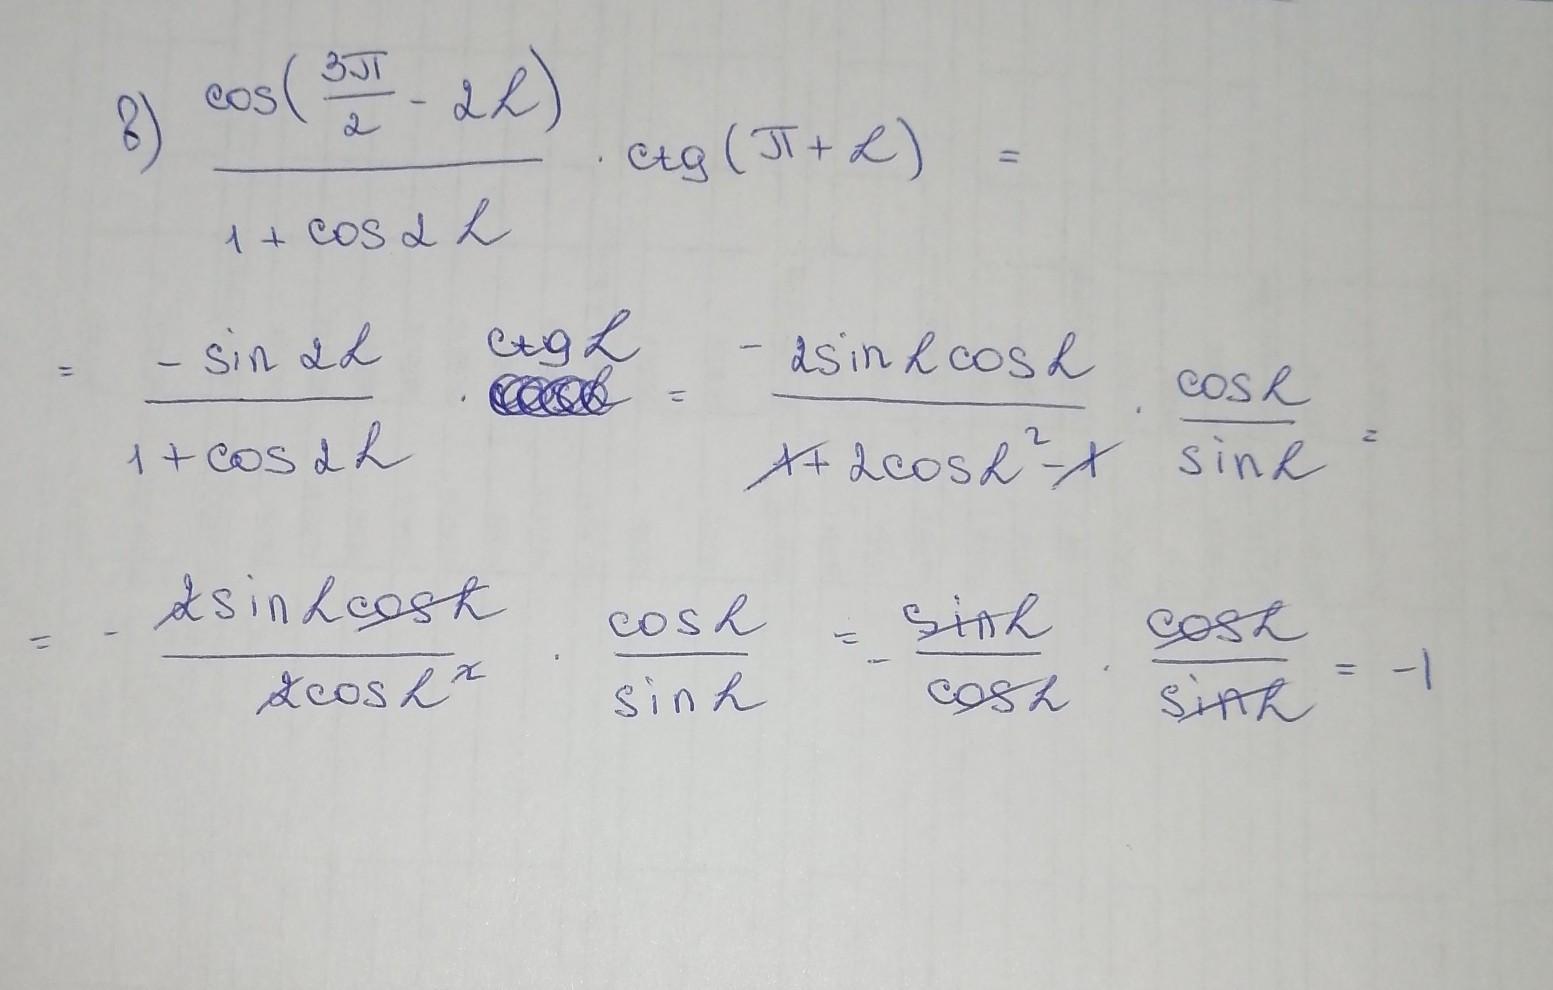 в) cos(3π/2 - 2α) / 1 + cos2α · ctg(π + α) =
= - sin2α / 1 + cos2α · ctgα = - 2sinαcosα / 1 + 2cosα² - 1 · cosα / sinα =
= - 2sinαcosα / 2cosα² · cosα / sinα = - sinα / cosα · cosα / sinα = -1